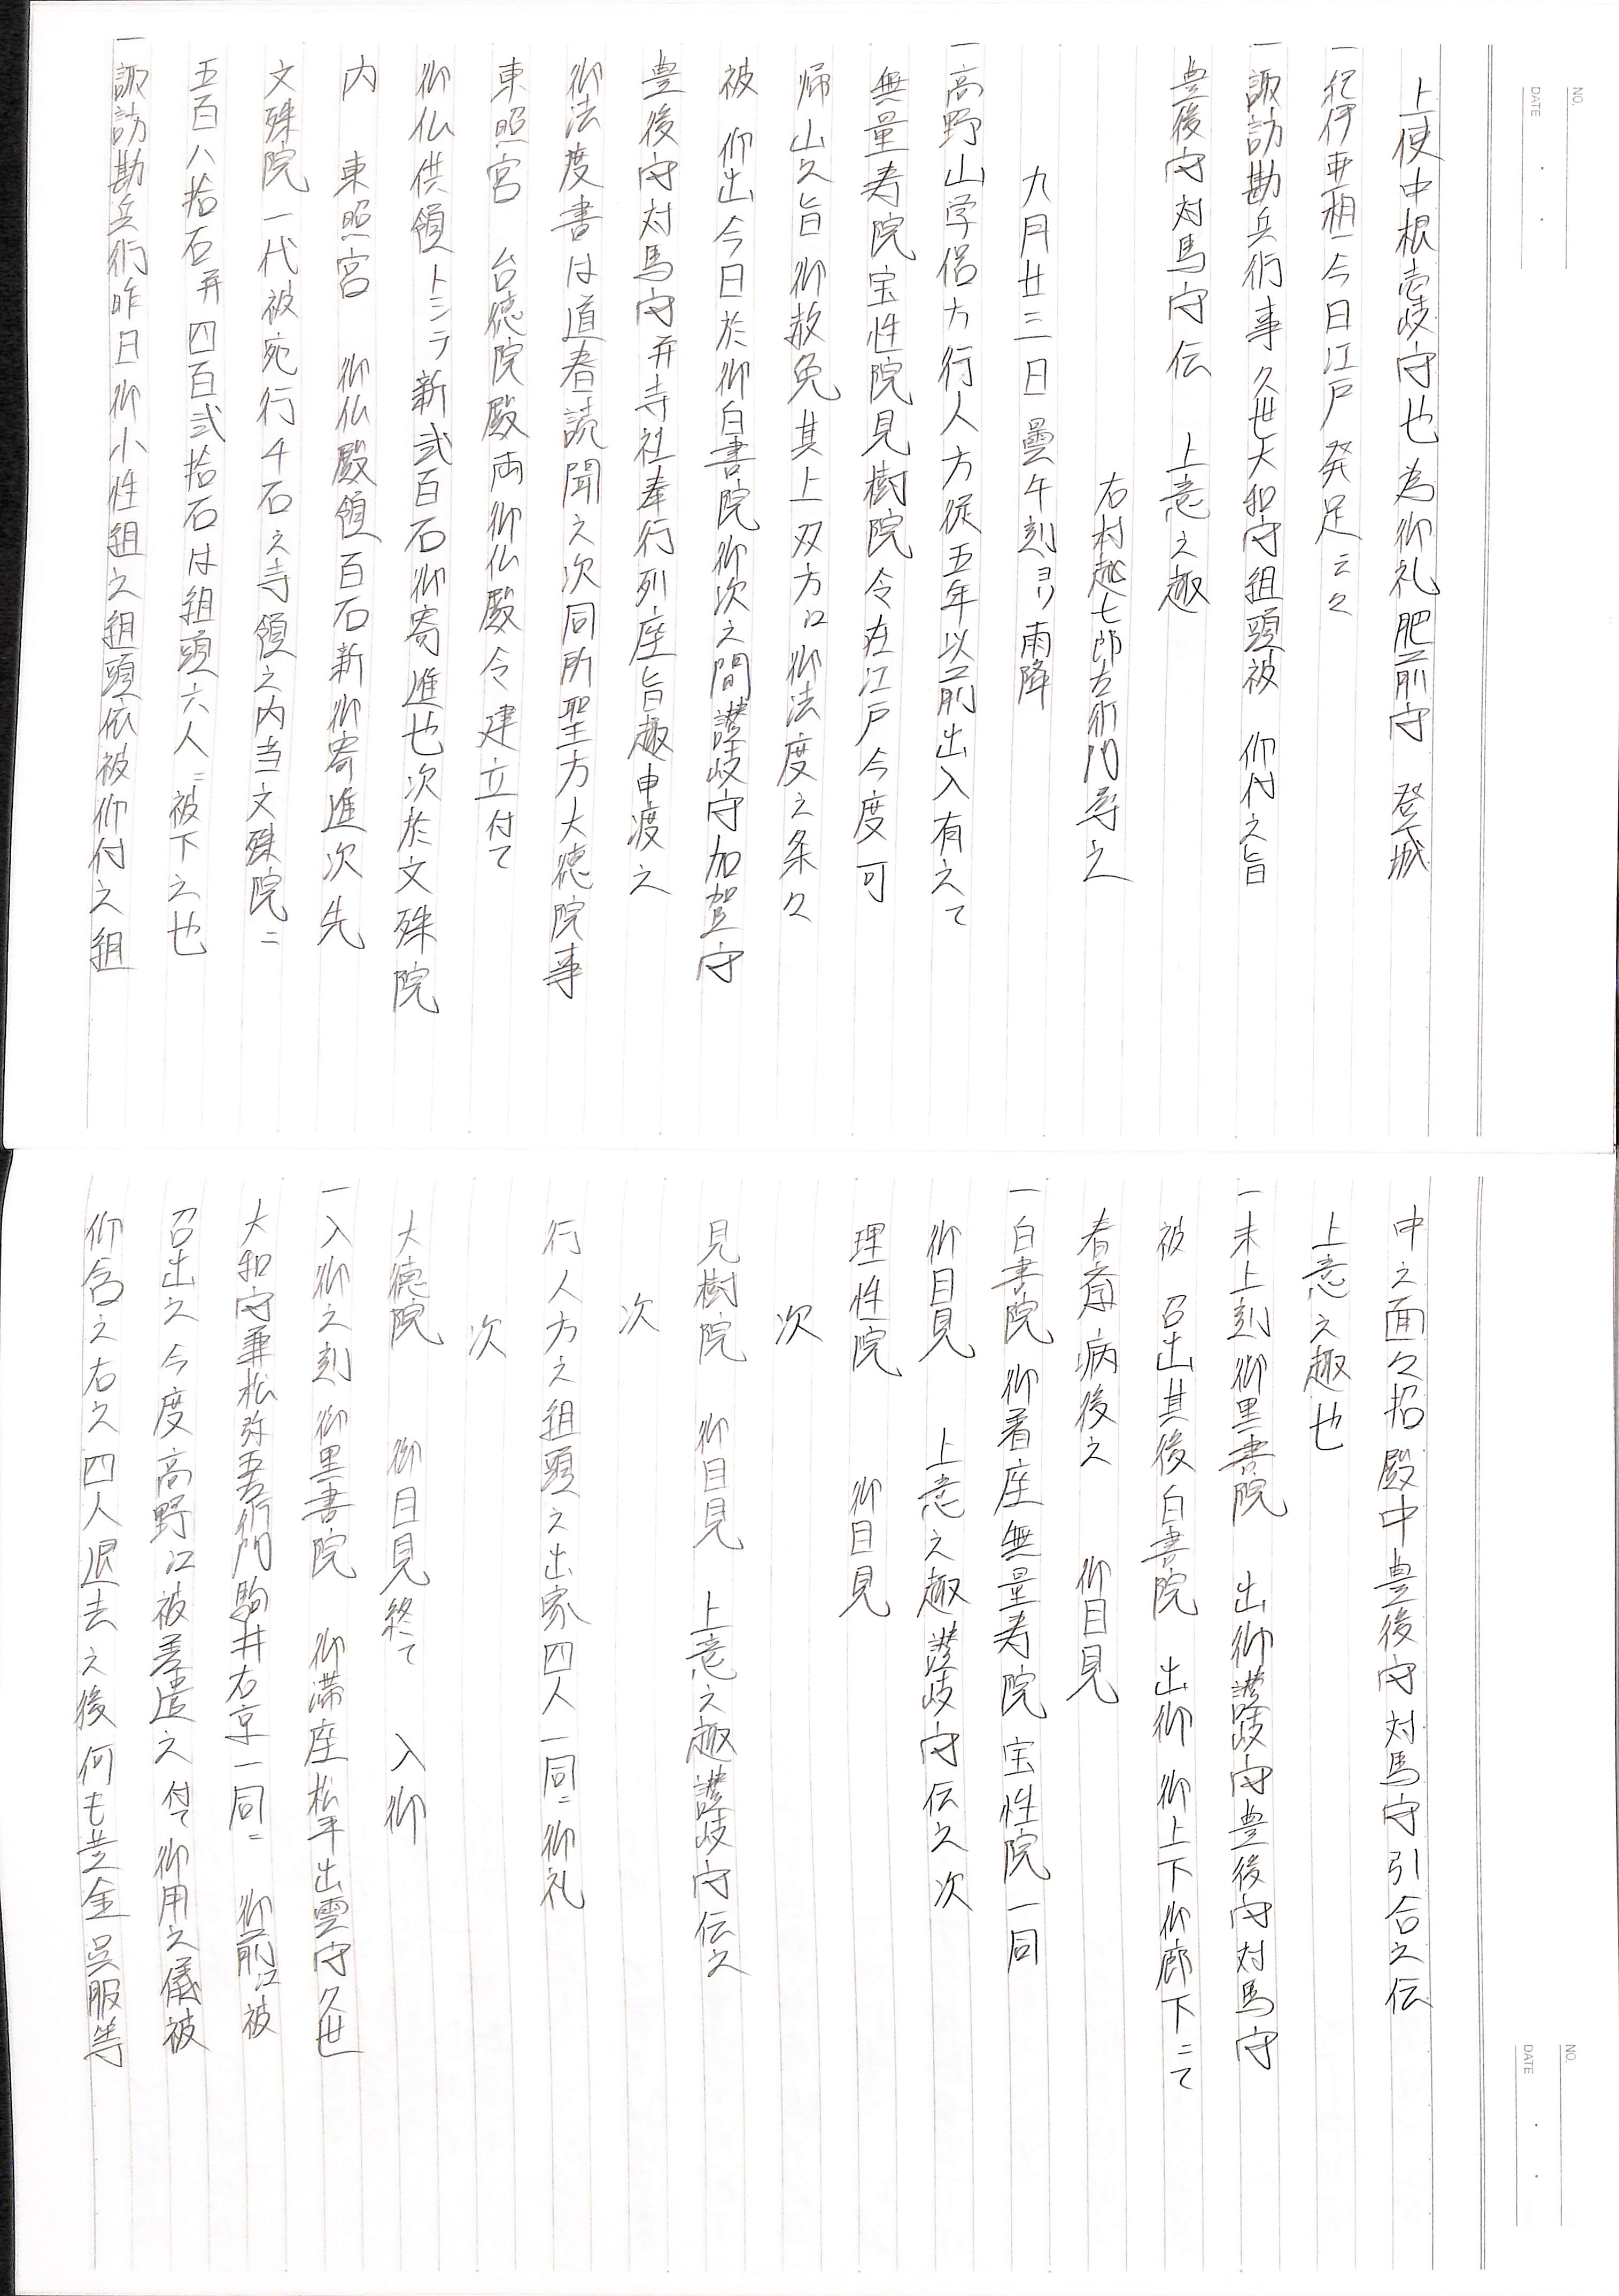 上使中根壱岐守也為御礼肥前守 登城
一紀伊亜相今日江戸発足云々
一諏訪勘兵衛事久世大和守組頭被 仰付之旨
豊後守対馬守伝 上意之趣
右村越七郎左衛門尋之
九月廿三日曇午刻ヨリ雨降
一高野山学侶方行人方従五年以前出入有之て
無量寿院宝性院見樹院令在江戸今度可
帰山之旨御赦免其上双方江御法度之条々
被 仰出今日於御白書院御次之間讃岐守加賀守
豊後守対馬守并寺社奉行列座旨趣申渡之
御法度書は道春読聞之次同所聖方大徳院事
東照宮 台徳院殿両御仏殿令建立付て
御仏供領トシテ新弐百石御寄進也次於文殊院
内 東照宮 御仏殿領百石新御寄進次先
文殊院一代被宛行千石之寺領之内当文殊院ニ
五百八拾石并四百弐拾石は組頭六人ニ被下之也
一諏訪勘兵衛昨日御小性組之組頭依被仰付之組
中之面々招殿中豊後守対馬守引合之伝
上意之趣也
一未上刻御黒書院 出御讃岐守豊後守対馬守
被 召出其後白書院 出御 御上下御廊下ニて
春斎病後之 御目見
一白書院御着座無量寿院宝性院一同
御目見 上意之趣讃岐守伝之次
理性院 御目見
次
見樹院 御目見 上意之趣讃岐守伝之
次
行人方之組頭之出家四人一同ニ御礼
次
大徳院 御目見終て 入御
一入御之刻御黒書院 御滞座松平出雲守久世
大和守兼松弥五左衛門駒井右京一同ニ 御前江被
召出之今度高野江被差遣之付て御用之儀被
仰含之右之四人退去之後何も黄金呉服等
NO.
DATE
NO.
DATE